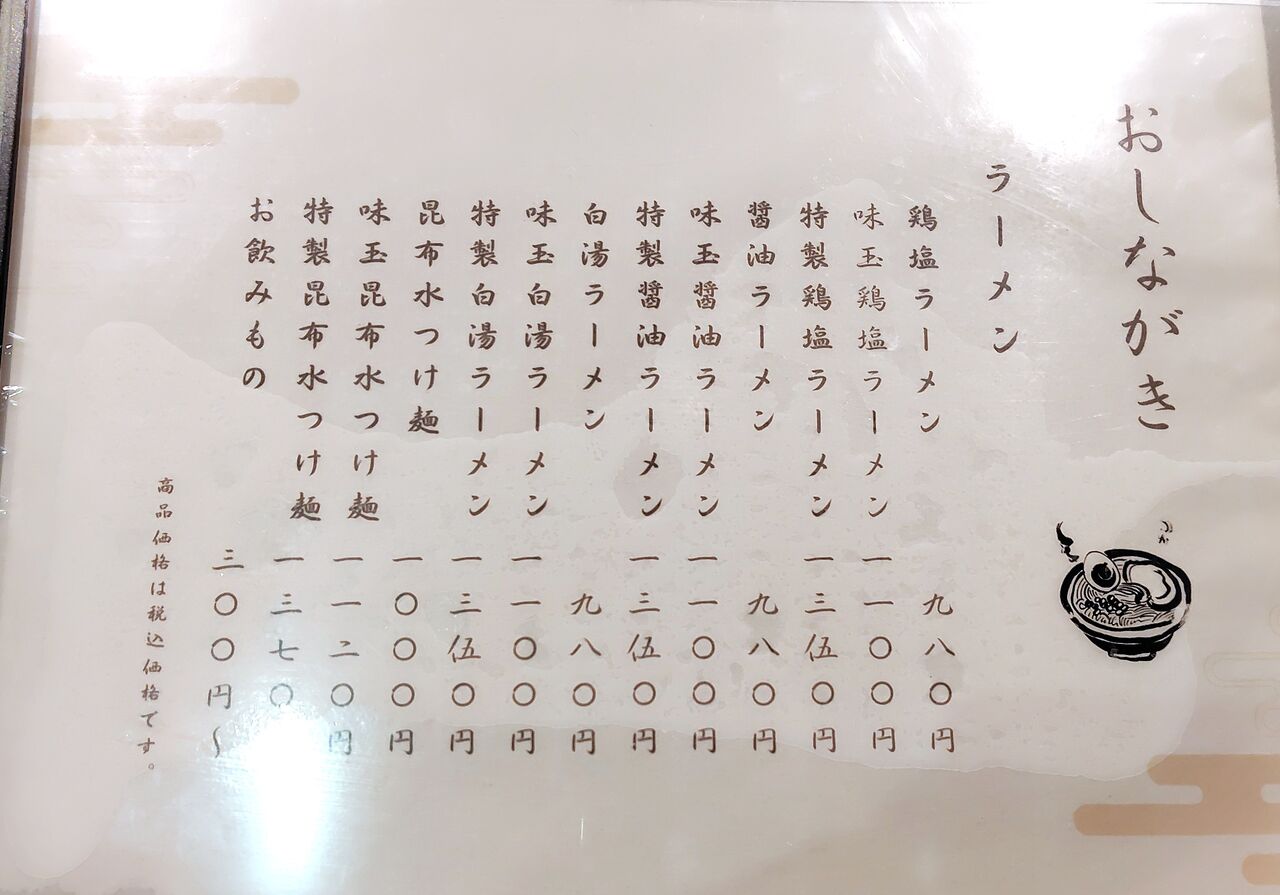 おしながき
ラーメン
鶏塩ラーメン 九八〇円
味玉鶏塩ラーメン 一一〇〇円
特製鶏塩ラーメン 一三伍〇円
醤油ラーメン 九八〇円
味玉醤油ラーメン 一一〇〇円
特製醤油ラーメン 一三伍〇円
白湯ラーメン 九八〇円
味玉白湯ラーメン 一一〇〇円
特製白湯ラーメン 一三伍〇円
昆布水つけ麺 一〇〇〇円
味玉昆布水つけ麺 一一二〇円
特製昆布水つけ麺 一三七〇
お飲みもの 三〇〇円〜
商品価格は税込価格です。